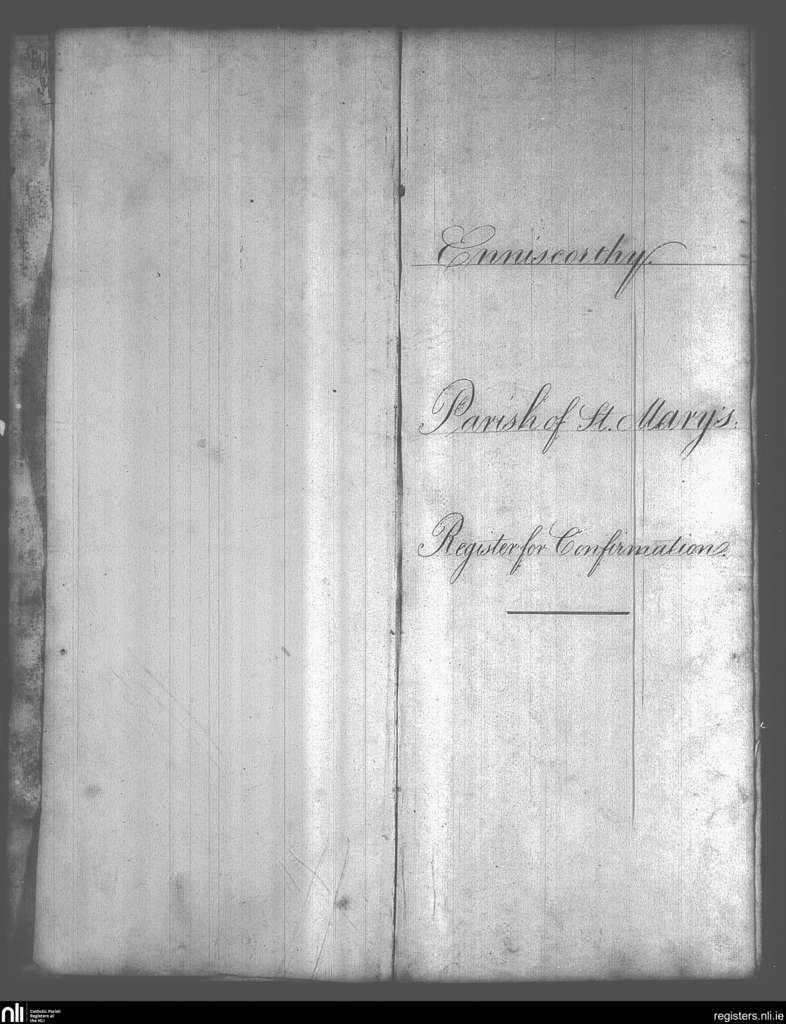 Enniscorthy.
Parish of St. Mary's.
Register for Confirmation.
nli
Catholic Parish
Registers at
the NLI
registers.nli.ie